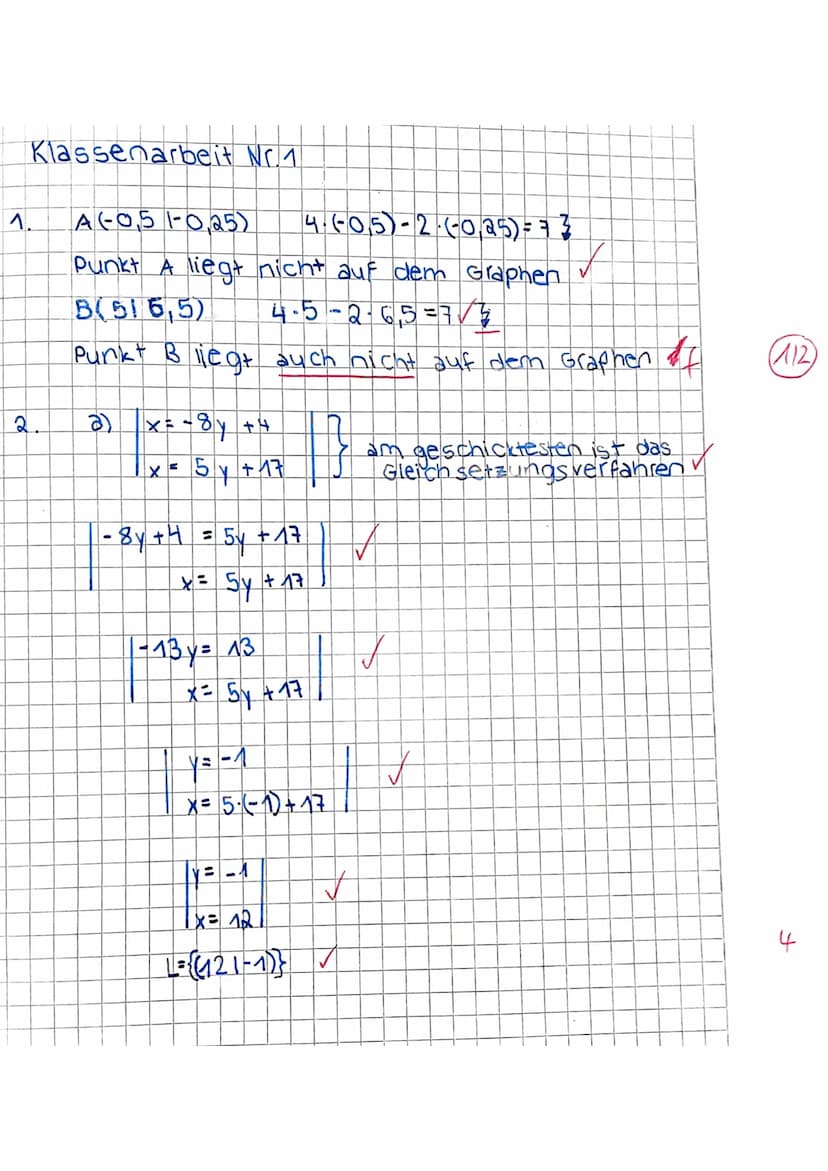 Klassenarbeit Nr. 1
1. A(-0,5 |-0,25) 4·(-0,5)-2·(-0,25)=7 ↯
Punkt A liegt nicht auf dem Graphen ✓
B(5|6,5) 4·5-2·6,5=7 ✓ ↯
Punkt B liegt auch nicht auf dem Graphen f
1/2
2. a) | x = -8y +4 |
| x = 5y +17 |
} am geschicktesten ist das
Gleichsetzungsverfahren ✓
| -8y+4 = 5y +17 | ✓
| x = 5y +17 |
| -13y = 13 | ✓
| x = 5y +17 |
| y = -1 | ✓
| x = 5·(-1)+17 |
| y = -1 | ✓
| x = 12 |
4
L={(12|-1)} ✓